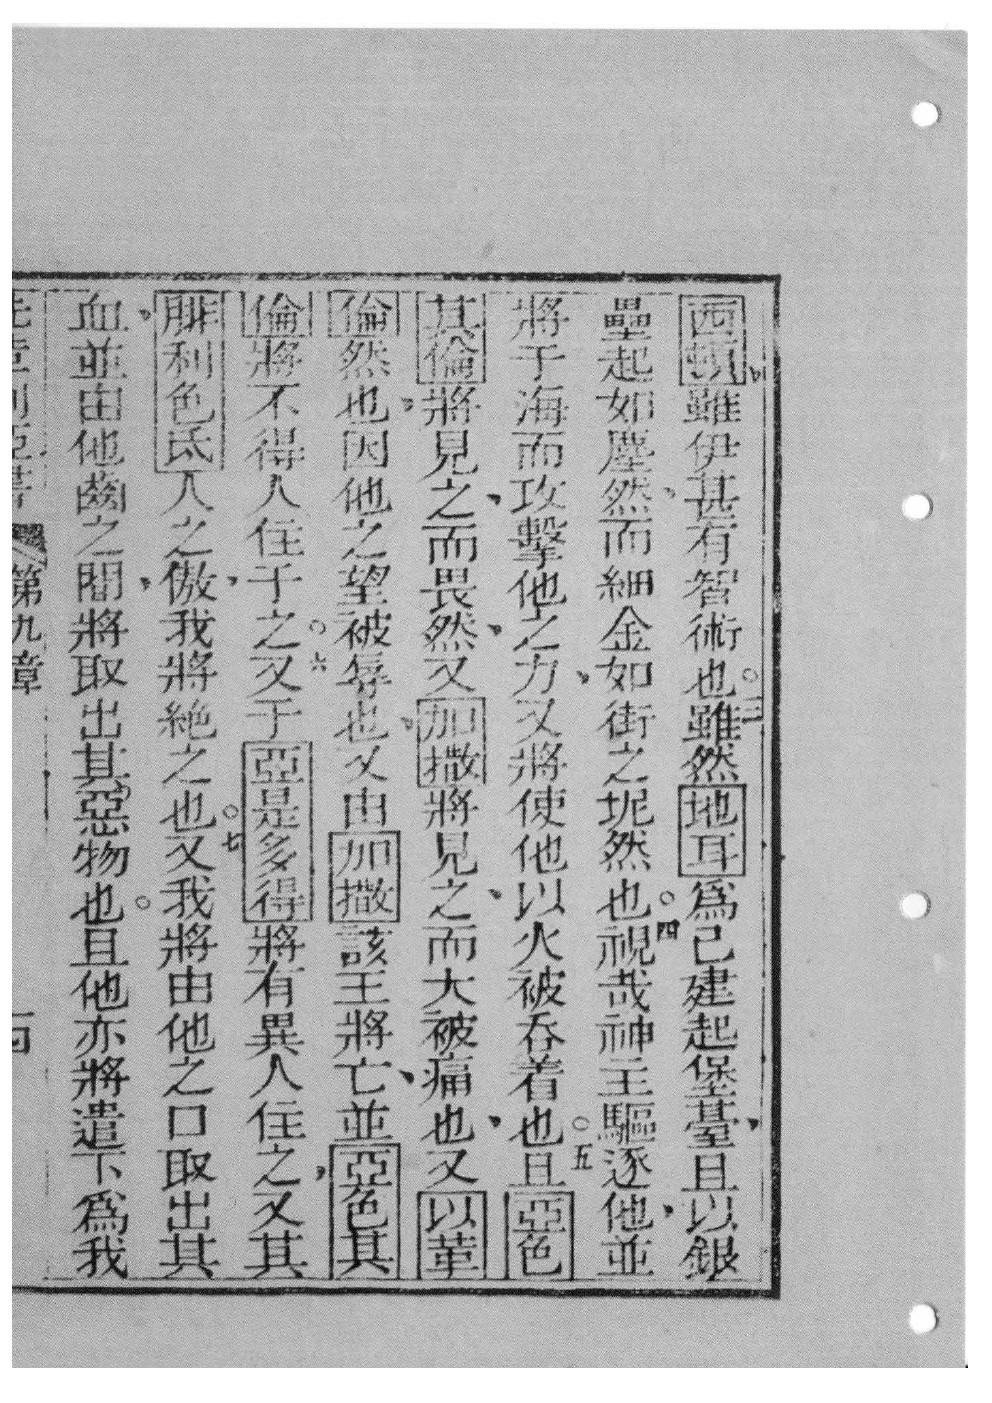 西頓雖伊甚有智術也。三雖然地耳為己建起堡臺、且以銀
壘起如塵然、而細金如街之坭然也。四視哉神主驅逐他、並
將于海而攻擊他之力、又將使他以火被吞着也。五且亞色
其倫將見之、而畏然、又加撒將見之、而大被痛也、又以革
倫然也、因他之望被辱也、又由加撒該王將亡、並亞色其
倫將不得人住于之。六又于亞是多得將有異人住之、又其
腓利色氐人之傲、我將絕之也。七又我將由他之口取出其
血、並由他齒之間、將取出其惡物也。且他亦將遣下為我
第九章